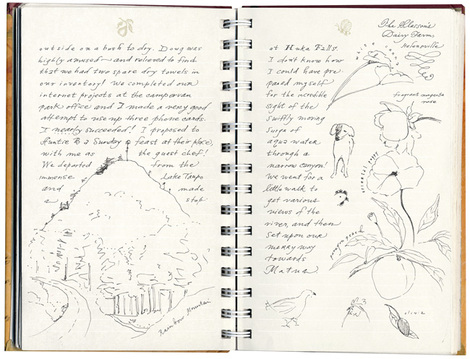 outside on a bush to dry. Doug was
highly amused - and relieved to find
that we had two spare dry towels in
our inventory! We completed our
internet projects at the campervan
park office and I made a very good
attempt to use up three phone cards.
I nearly succeeded! I proposed to
Auntie B a Sunday feast at their place,
with me as the guest chef!
We departed from the
immense Lake Taupo
and made
Rainbow Mountain
at Huka Falls.
I don't know how
I could have pre
pared myself
for the incredible
sight of the
swiftly moving
surge of
aqua water
through a
narrow canyon!
We went for a
little walk to
get various
views of the
river, and then
set upon our
merry way
towards
Matua
Dairy Farm
fragrant magenta
rose
olive